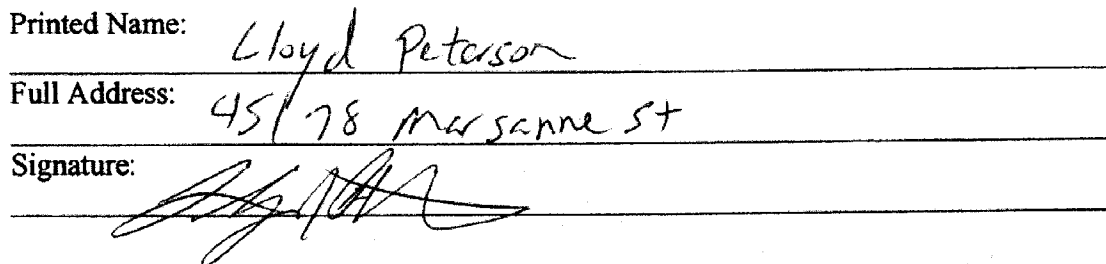 Printed Name: Lloyd Peterson
Full Address: 45/78 Marsanne St
Signature: